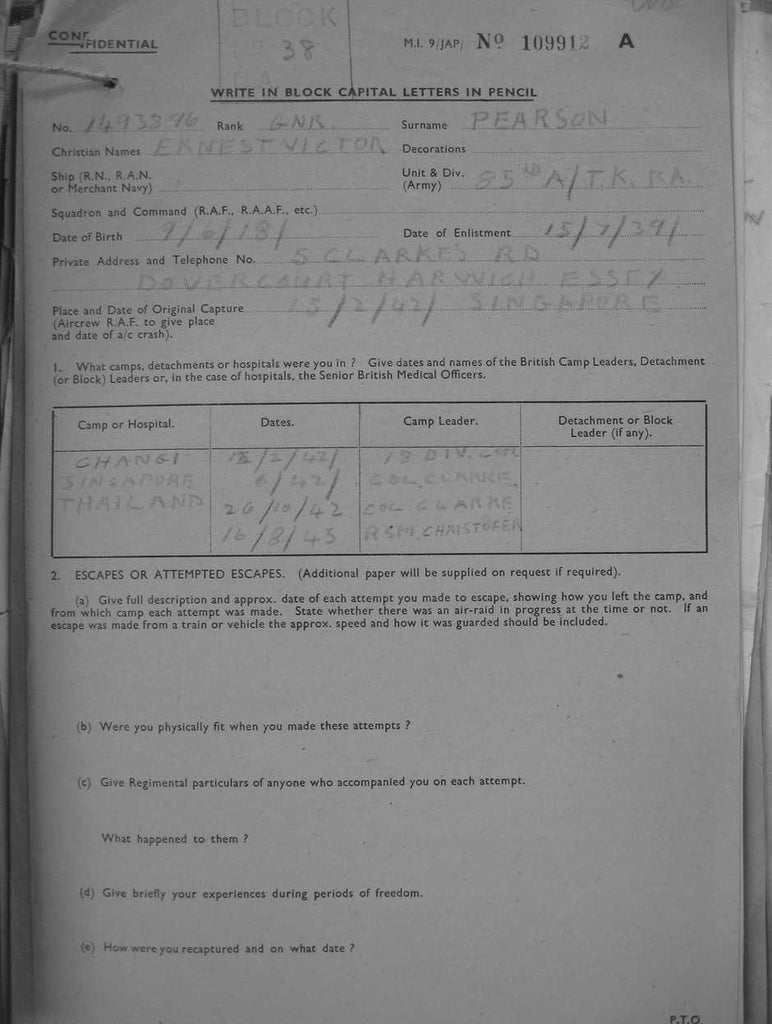 BLOCK
38
CONFIDENTIAL
M.I. 9/JAP/ No 109912 A
WRITE IN BLOCK CAPITAL LETTERS IN PENCIL
No. 1493396 Rank GNR. Surname PEARSON
Christian Names ERNEST VICTOR Decorations
Ship (R.N., R.A.N. or Merchant Navy) Unit & Div. (Army) 85th A/T.K. RA.
Squadron and Command (R.A.F., R.A.A.F., etc.)
Date of Birth 9/6/18/ Date of Enlistment 15/7/39/
Private Address and Telephone No. 5 CLARKES RD
DOVERCOURT HARWICH ESSEX
Place and Date of Original Capture 15/2/42/ SINGAPORE
(Aircrew R.A.F. to give place
and date of a/c crash).
1. What camps, detachments or hospitals were you in ? Give dates and names of the British Camp Leaders, Detachment
(or Block) Leaders or, in the case of hospitals, the Senior British Medical Officers.
Camp or Hospital. Dates. Camp Leader. Detachment or Block Leader (if any).
CHANGI 15/2/42/ 18 DIV. COM
SINGAPORE 6/42/ COL. CLARKE.
THAILAND 26/10/42 COL CLARKE
16/8/45 RSM CHRISTOFER
2. ESCAPES OR ATTEMPTED ESCAPES. (Additional paper will be supplied on request if required).
(a) Give full description and approx. date of each attempt you made to escape, showing how you left the camp, and
from which camp each attempt was made. State whether there was an air-raid in progress at the time or not. If an
escape was made from a train or vehicle the approx. speed and how it was guarded should be included.
(b) Were you physically fit when you made these attempts ?
(c) Give Regimental particulars of anyone who accompanied you on each attempt.
What happened to them ?
(d) Give briefly your experiences during periods of freedom.
(e) How were you recaptured and on what date ?
P.T.O.